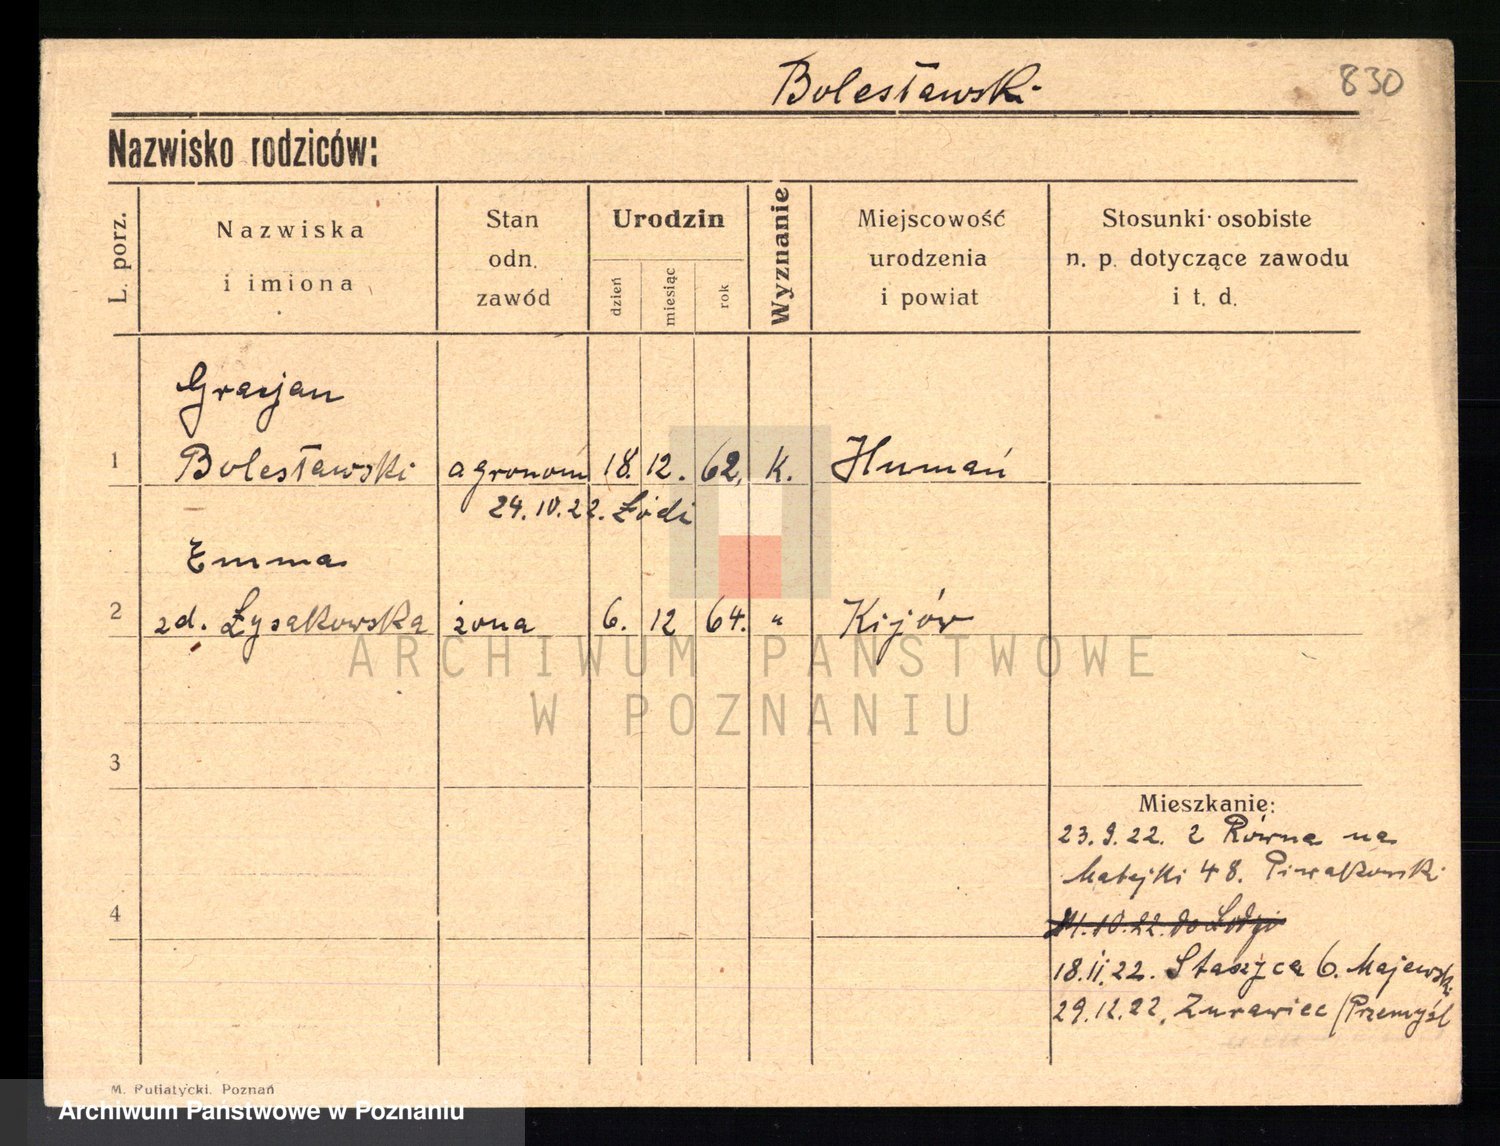 Bolesławski
830
Nazwisko rodziców:
L. porz.
Nazwiska
i imiona
Stan
odn.
zawód
Urodzin
dzień
miesiąc
rok
Wyznanie
Miejscowość
urodzenia
i powiat
Stosunki osobiste
n. p. dotyczące zawodu
i t. d.
Gracjan
1 Bolesławski agronom 18. 12. 62. K. Humań
24.10.22. Łódź
Emma
2 zd. Łysakowska żona 6. 12 64. " Kijów
ARCHIWUM PAŃSTWOWE
W POZNANIU
3
Mieszkanie:
23.9.22. z Równa na
Matejki 48. Piwakowski
4
11.10.22. do Łodzi
18.11.22. Staszyca 6. Majewski
29.12.22. Żurawiec /Przemyśl
M. Putiatycki. Poznań
Archiwum Państwowe w Poznaniu